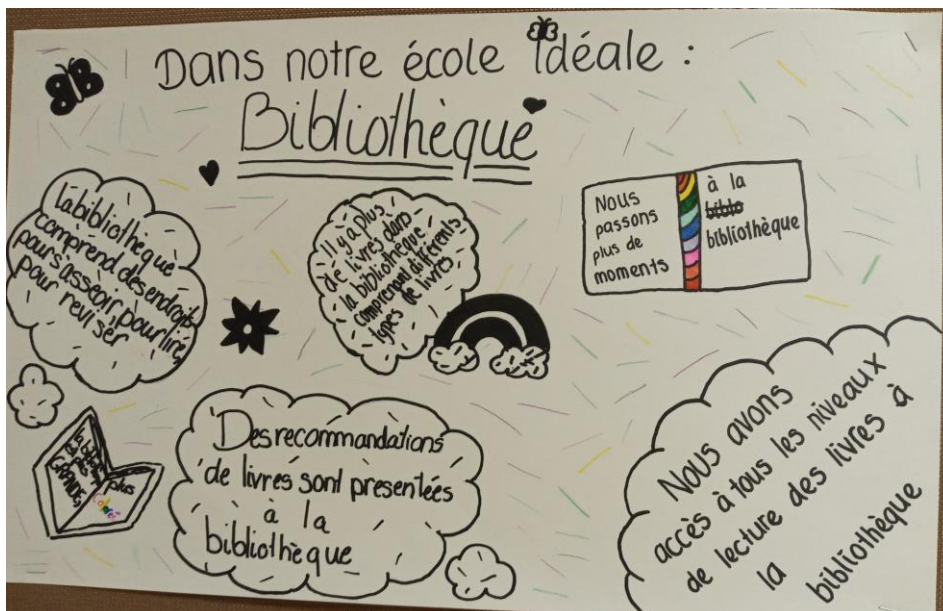 Dans notre école idéale :
Bibliothèque
La bibliothèque
comprend des endroits
pour s'asseoir, pour lire,
pour reviser
Il y a plus
de livres dans
la bibliothèque
comprenant différents
types de livres
Nous
passons
plus de
moments
à la
bibliothèque
GRANDE,
plus
coloré
Des recommandations
de livres sont presentées
à la
bibliothèque
Nous avons
accès à tous les niveaux
de lecture des livres à
la
bibliothèque